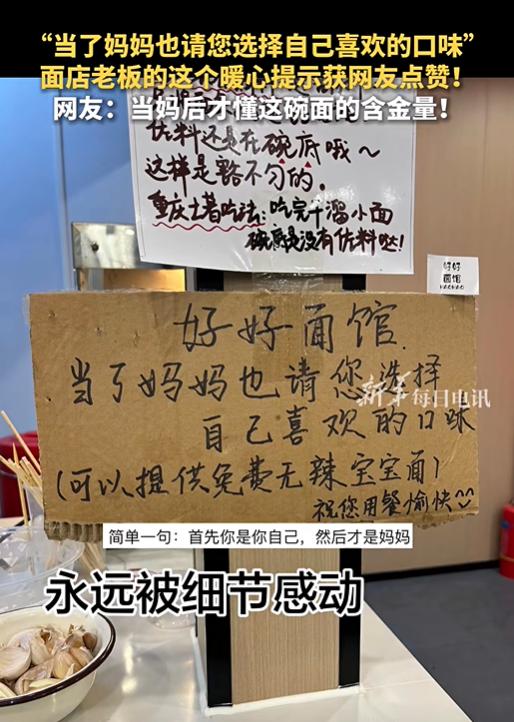 “当了妈妈也请您选择自己喜欢的口味”
面店老板的这个暖心提示获网友点赞！
网友：当妈后才懂这碗面的含金量！
佐料还是在碗底哦～
这样是路不匀的.
重庆土著吃法:吃完干溜小面
碗底是没有佐料哒!
好好
面馆
HAOHAO
好好面馆.
当了妈妈也请您选择
新华每日电讯
自己喜欢的口味
(可以提供免费无辣宝宝面)
祝您用餐愉快^^
简单一句：首先你是你自己，然后才是妈妈
永远被细节感动